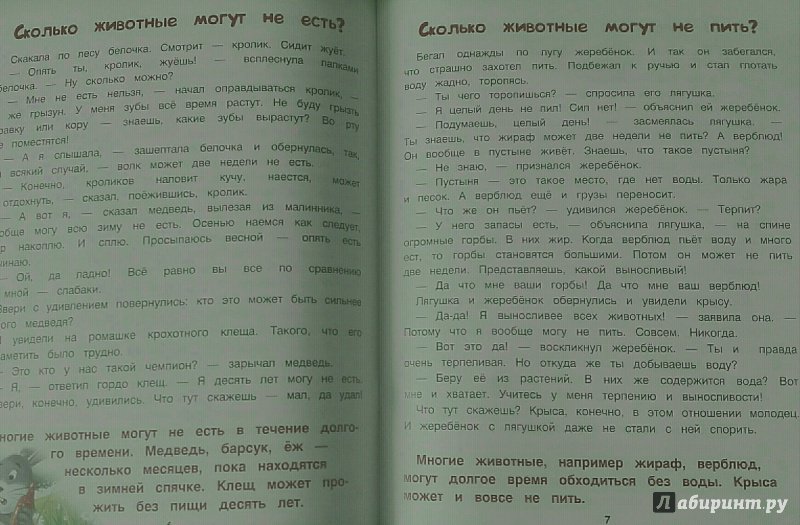 Сколько животные могут не есть?
Скакала по лесу белочка. Смотрит — кролик. Сидит жуёт.
— Опять ты, кролик, жуёшь! — всплеснула лапками
белочка. — Ну сколько можно?
— Мне не есть нельзя, — начал оправдываться кролик, —
же грызун. У меня зубы всё время растут. Не буду грызть
равку или кору — знаешь, какие зубы вырастут? Во рту
не поместятся!
— А я слышала, — зашептала белочка и обернулась, так,
всякий случай, — волк может две недели не есть.
— Конечно, кроликов наловит кучу, наестся, может
отдохнуть, — сказал, поёжившись, кролик.
— А вот я, — сказал медведь, вылезая из малинника, —
обще могу всю зиму не есть. Осенью наемся как следует,
р накоплю. И сплю. Просыпаюсь весной — опять есть
чинаю.
— Ой, да ладно! Всё равно вы все по сравнению
мной — слабаки.
Звери с удивлением повернулись: кто это может быть сильнее
ого медведя?
И увидели на ромашке крохотного клеща. Такого, что его
аметить было трудно.
— Это кто у нас такой чемпион? — зарычал медведь.
— Я, — ответил гордо клещ. — Я десять лет могу не есть.
вери, конечно, удивились. Что тут скажешь — мал, да удал!
ногие животные могут не есть в течение долго-
го времени. Медведь, барсук, ёж —
несколько месяцев, пока находятся
в зимней спячке. Клещ может про-
жить без пищи десять лет.
Сколько животные могут не пить?
Бегал однажды по лугу жеребёнок. И так он забегался,
что страшно захотел пить. Подбежал к ручью и стал глотать
воду жадно, торопясь.
— Ты чего торопишься? — спросила его лягушка.
— Я целый день не пил! Сил нет! — объяснил ей жеребёнок.
— Подумаешь, целый день! — засмеялась лягушка. —
Ты знаешь, что жираф может две недели не пить? А верблюд!
Он вообще в пустыне живёт. Знаешь, что такое пустыня?
— Не знаю, — признался жеребёнок.
— Пустыня — это такое место, где нет воды. Только жара
и песок. А верблюд ещё и грузы переносит.
— Что же он пьёт? — удивился жеребёнок. — Терпит?
— У него запасы есть, — объяснила лягушка, — на спине
огромные горбы. В них жир. Когда верблюд пьёт воду и много
ест, то горбы становятся большими. Потом он может не пить
две недели. Представляешь, какой выносливый!
— Да что мне ваши горбы! Да что мне ваш верблюд!
Лягушка и жеребёнок обернулись и увидели крысу.
— Да-да! Я выносливее всех животных! — заявила она. —
Потому что я вообще могу не пить. Совсем. Никогда.
— Вот это да! — воскликнул жеребёнок. — Ты и правда
очень терпеливая. Но откуда же ты добываешь воду?
— Беру её из растений. В них же содержится вода? Вот
мне и хватает. Учитесь у меня терпению и выносливости!
Что тут скажешь? Крыса, конечно, в этом отношении молодец.
И жеребёнок с лягушкой даже не стали с ней спорить.
Многие животные, например жираф, верблюд,
могут долгое время обходиться без воды. Крыса
может и вовсе не пить.
7
Лабиринт.ру